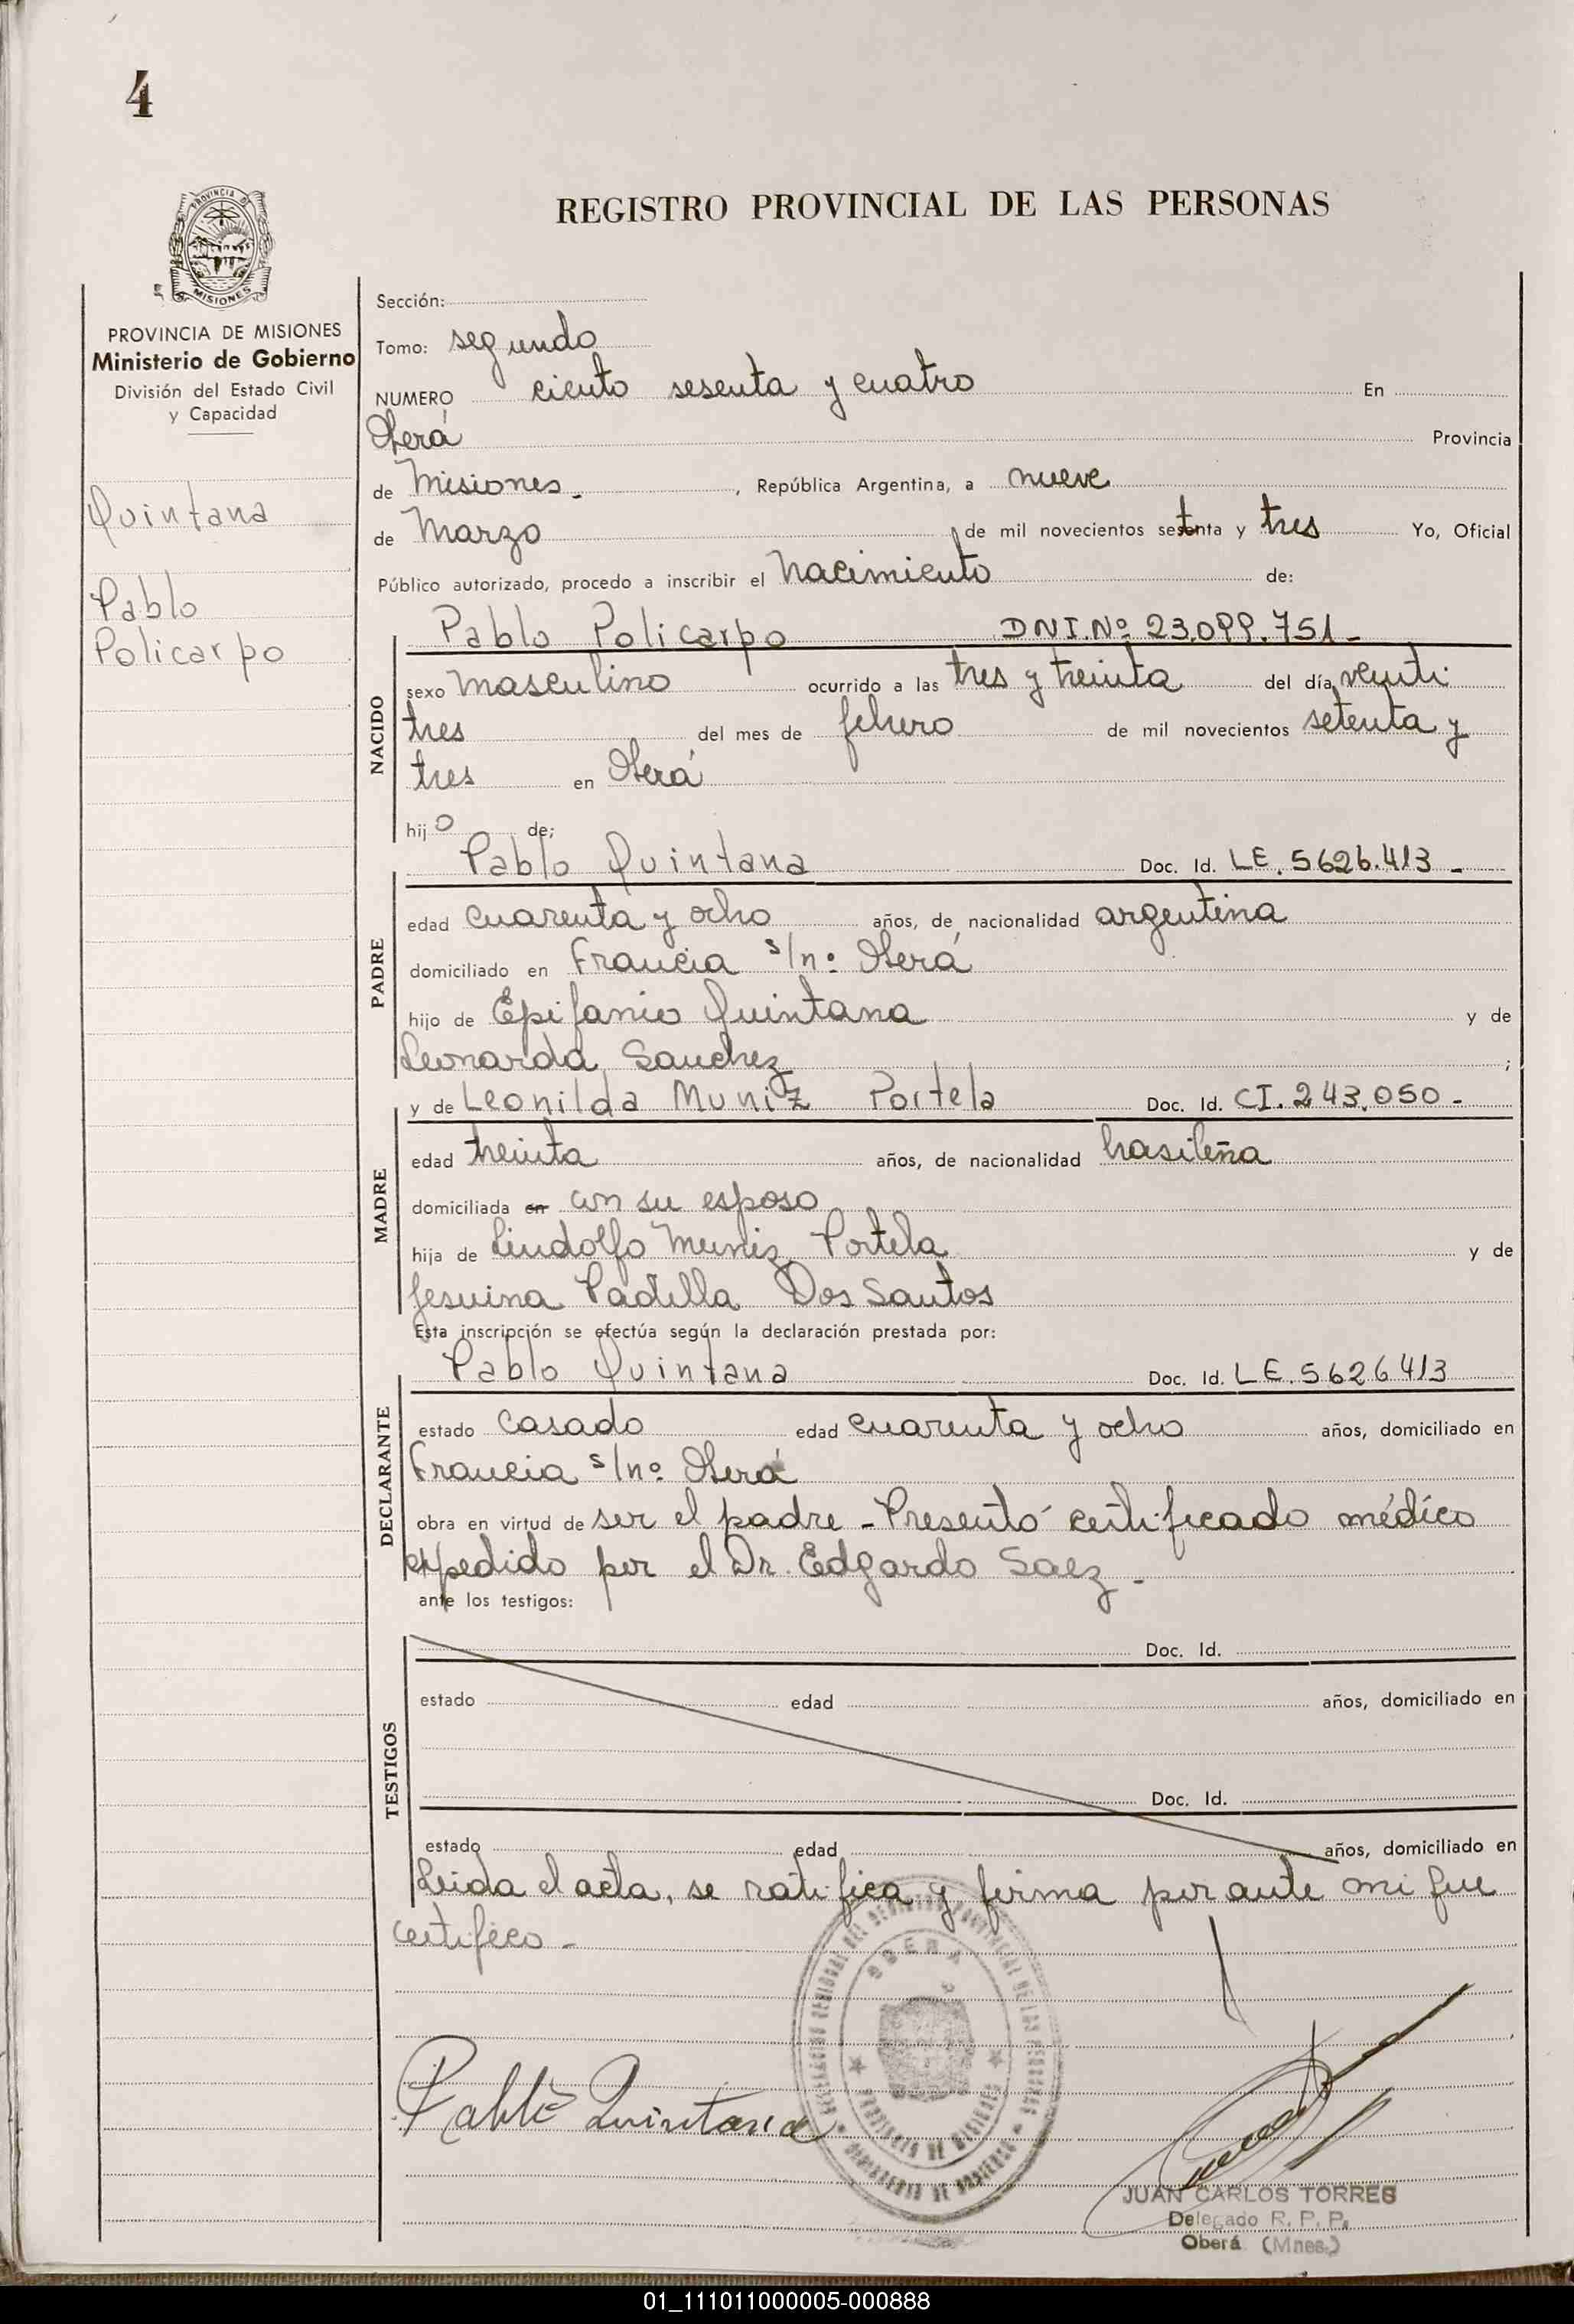 4
PROVINCIA DE MISIONES
REGISTRO PROVINCIAL DE LAS PERSONAS
PROVINCIA DE MISIONES
Ministerio de Gobierno
División del Estado Civil
y Capacidad
Quintana
Pablo
Policarpo
Sección:
Tomo: segundo
NUMERO ciento sesenta y cuatro En
Oberá Provincia
de Misiones. , República Argentina, a nueve
de Marzo de mil novecientos setenta y tres Yo, Oficial
Público autorizado, procedo a inscribir el nacimiento de:
NACIDO
Pablo Policarpo DNI.Nº 23.099.751-
sexo masculino ocurrido a las tres y treinta del día veinti
tres del mes de febrero de mil novecientos setenta y
tres en Oberá
hijo de;
PADRE
Pablo Quintana Doc. Id. LE. 5626.413-
edad cuarenta y ocho años, de nacionalidad argentina
domiciliado en Francia s/nº Oberá
hijo de Epifanio Quintana y de
Leonarda Sanchez ;
MADRE
y de Leonilda Muniz Portela Doc. Id. CI. 243.050-
edad treinta años, de nacionalidad brasileña
domiciliada en con su esposo
hija de Lindolfo Muniz Portela y de
Jesuina Padilla Dos Santos
Esta inscripción se efectúa según la declaración prestada por:
DECLARANTE
Pablo Quintana Doc. Id. LE. 5626413
estado casado edad cuarenta y ocho años, domiciliado en
Francia s/nº Oberá
obra en virtud de ser el padre - Presentó certificado médico
expedido por el Dr. Edgardo Saez -
ante los testigos:
TESTIGOS
Doc. Id.
estado edad años, domiciliado en
Doc. Id.
estado edad años, domiciliado en
Leida el acta, se ratifica y firma por ante mi que
certifico -
OBERA
PROVINCIA DE MISIONES
MINISTERIO DE GOBIERNO
Pablo Quintana
JUAN CARLOS TORRES
Delegado R. P. P.
Oberá (Mnes.)
01_111011000005-000888